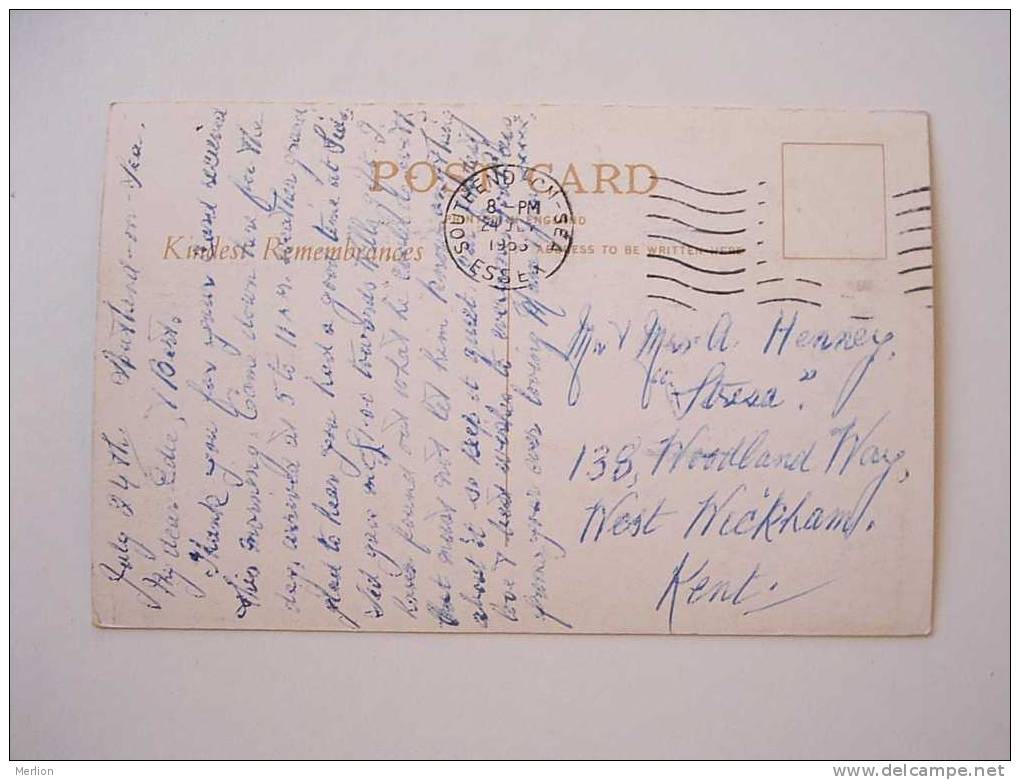 POST CARD
PRINTED IN ENGLAND
Kindest Remembrances
ADDRESS TO BE WRITTEN HERE
SOUTHEND-ON-SEA
8 - PM
24 JLY
ESSEX
July 24th Southend-on-Sea.
My dear Edie, & Bert.
Thank you for your card received
this morning. Came down here for the
day, arrived at 5 to 11 A.M. weather grand
glad to hear you had a good time at
Sid gave me towards
have found out what he could do with
but must not let him know anything
about it so keep it quiet
love & best wishes to everyone
from your ever loving
Mr & Mrs. A. Henney,
"Stresa".
138, Woodland Way,
West Wickham.
Kent.
Merlion
www.delcampe.net